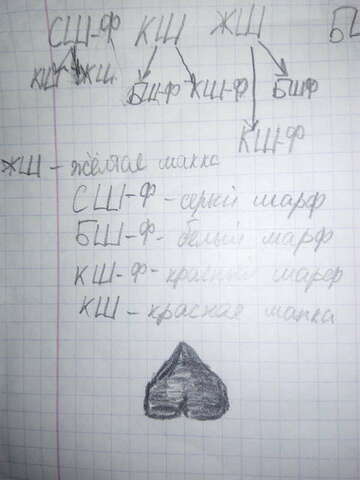 СШ-Ф КШ ЖШ БШ
КШ ЖШ БШ-Ф КШ-Ф БШФ
КШ-Ф
ЖШ - жёлтая шапка
СШ-Ф - серый шарф
БШ-Ф - белый шарф
КШ-Ф - красный шарф
КШ - красная шапка